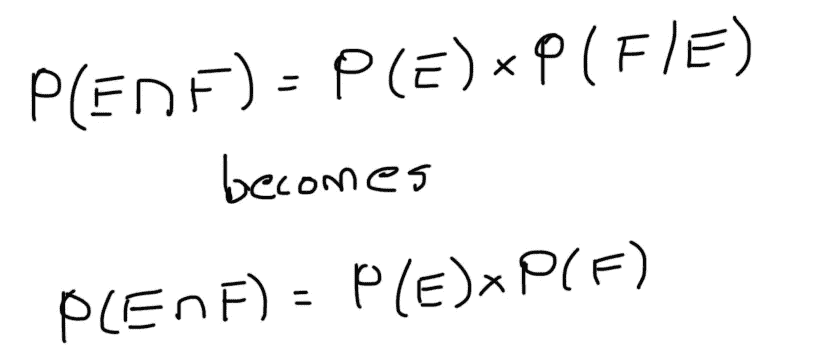 P(E∩F) = P(E) × P(F/E)
becomes
P(E∩F) = P(E) × P(F)